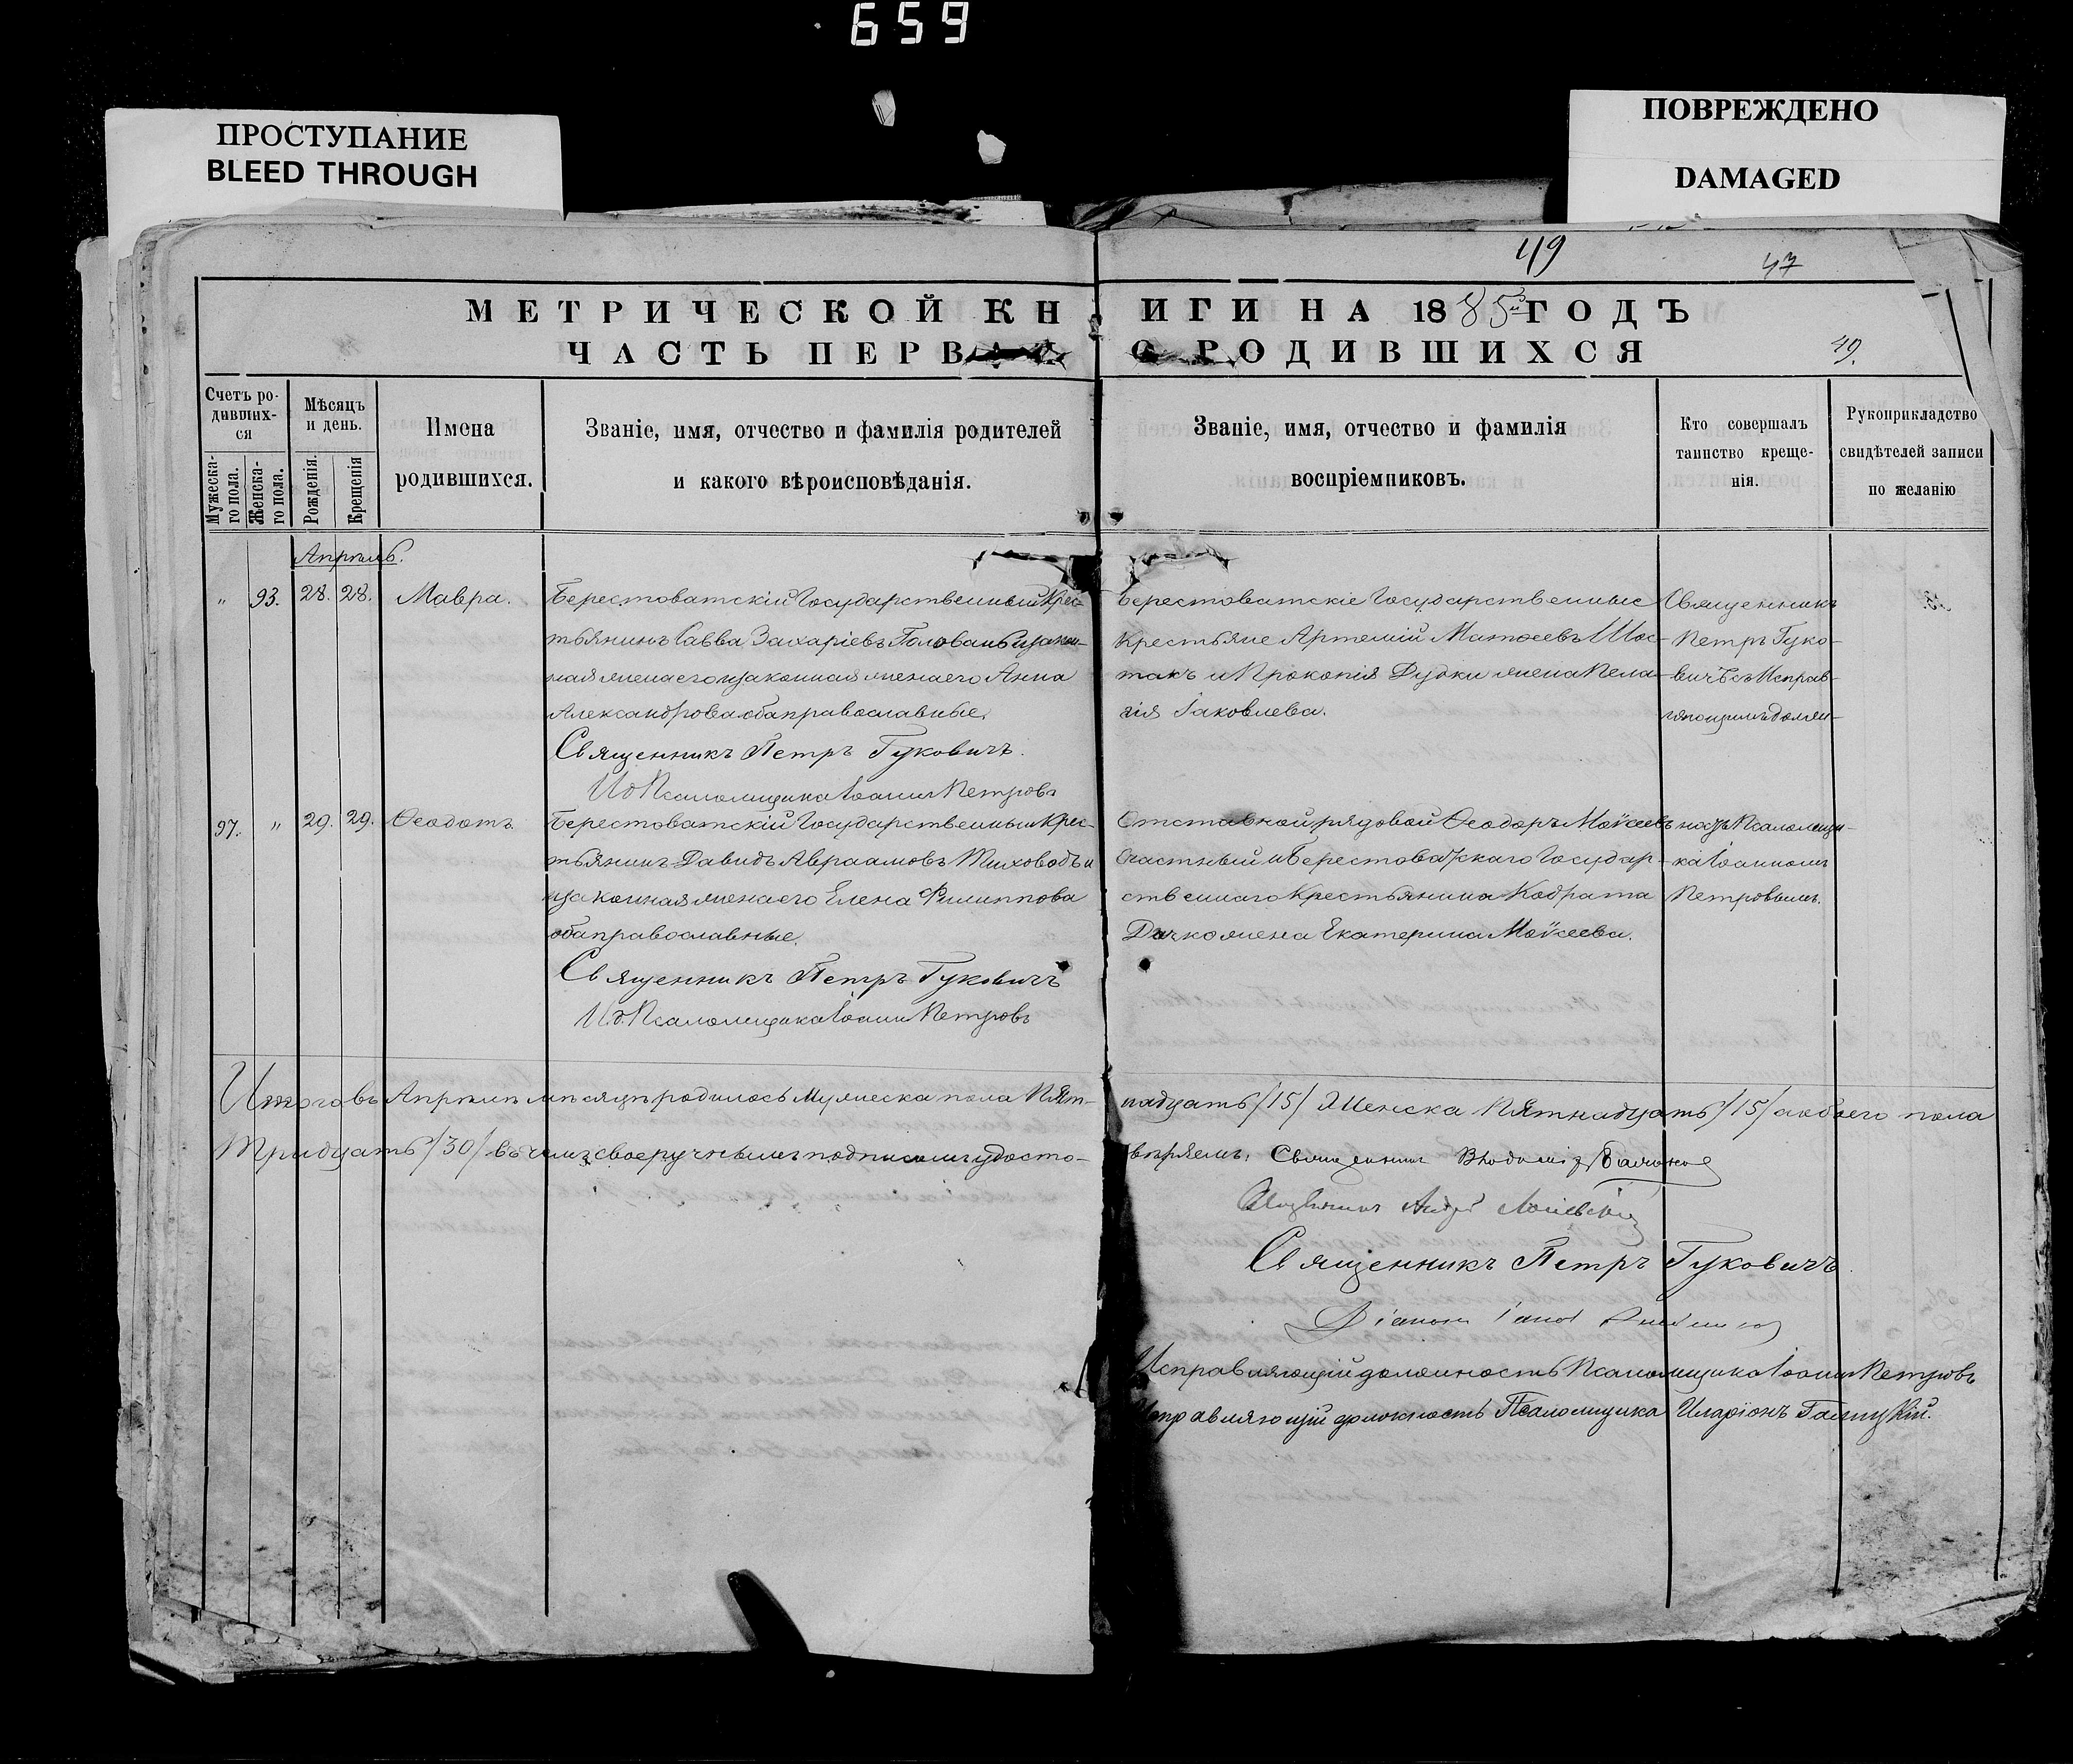 659
ПРОСТУПАНИЕ
BLEED THROUGH
ПОВРЕЖДЕНО
DAMAGED
49
47
МЕТРИЧЕСКОЙ КНИГИ НА 1885 ГОДЪ
ЧАСТЬ ПЕРВАЯ О РОДИВШИХСЯ
49.
Счетъ ро-
дивших-
ся
Мужеска-
го пола.
Женска-
го пола.
Мѣсяцъ
и день.
Рожденія.
Крещенія
Имена
родившихся.
Званіе, имя, отчество и фамилія родителей
и какого вѣроисповѣданія.
Званіе, имя, отчество и фамилія
воспріемниковъ.
Кто совершалъ
таинство креще-
нія.
Рукоприкладство
свидѣтелей записи
по желанію
Апрѣль.
" 93. 28. 28. Мавра.
Берестоватскій Государственный Крес-
тьянинъ Савва Захаріевъ Головань и закон-
ная жена его изаконная жена его Анна
Александрова оба православные.
Священникъ Петръ Гуковичъ.
И д Псаломщика Іоаннъ Петровъ
Берестоватскіе Государственные
Крестьяне Артемій Матѳеевъ Шос-
такъ и Прокопія Дудки жена Пела-
гія Іаковлева.
Священникъ
Петръ Гуко-
вичъ съ Исправ-
ляющимъ должн-
97. " 29. 29. Ѳеодотъ.
Берестоватскій Государственный Крес-
тьянинъ Давидъ Авраамовъ Тиховодъ и
изаконная жена его Елена Филиппова
оба православные.
Священникъ Петръ Гуковичъ
И д. Псаломщика Іоаннъ Петровъ
Отставной рядовой Ѳеодоръ Моѵсеевъ
Счастный и Берестоватскаго Государ-
ственнаго Крестьянина Кодрата
жена Екатерина Моѵсеева.
ность Псаломщи-
ка Іоанномъ
Петровымъ.
Итого въ Апрѣлѣ мѣсяцѣ родилось Мужеска пола Пят-
надцать /15/ Женска Пятнадцать /15/ а обоего пола
Тридцать /30/ въ чемъ своеручнымъ подписомъ удосто-
вѣряемъ. Священникъ
Священникъ
Священникъ Петръ Гуковичъ.
Діаконъ
Исправляющій должность Псаломщика Іоаннъ Петровъ
Исправляющій должность Псаломщика Иларіонъ Галицкій.